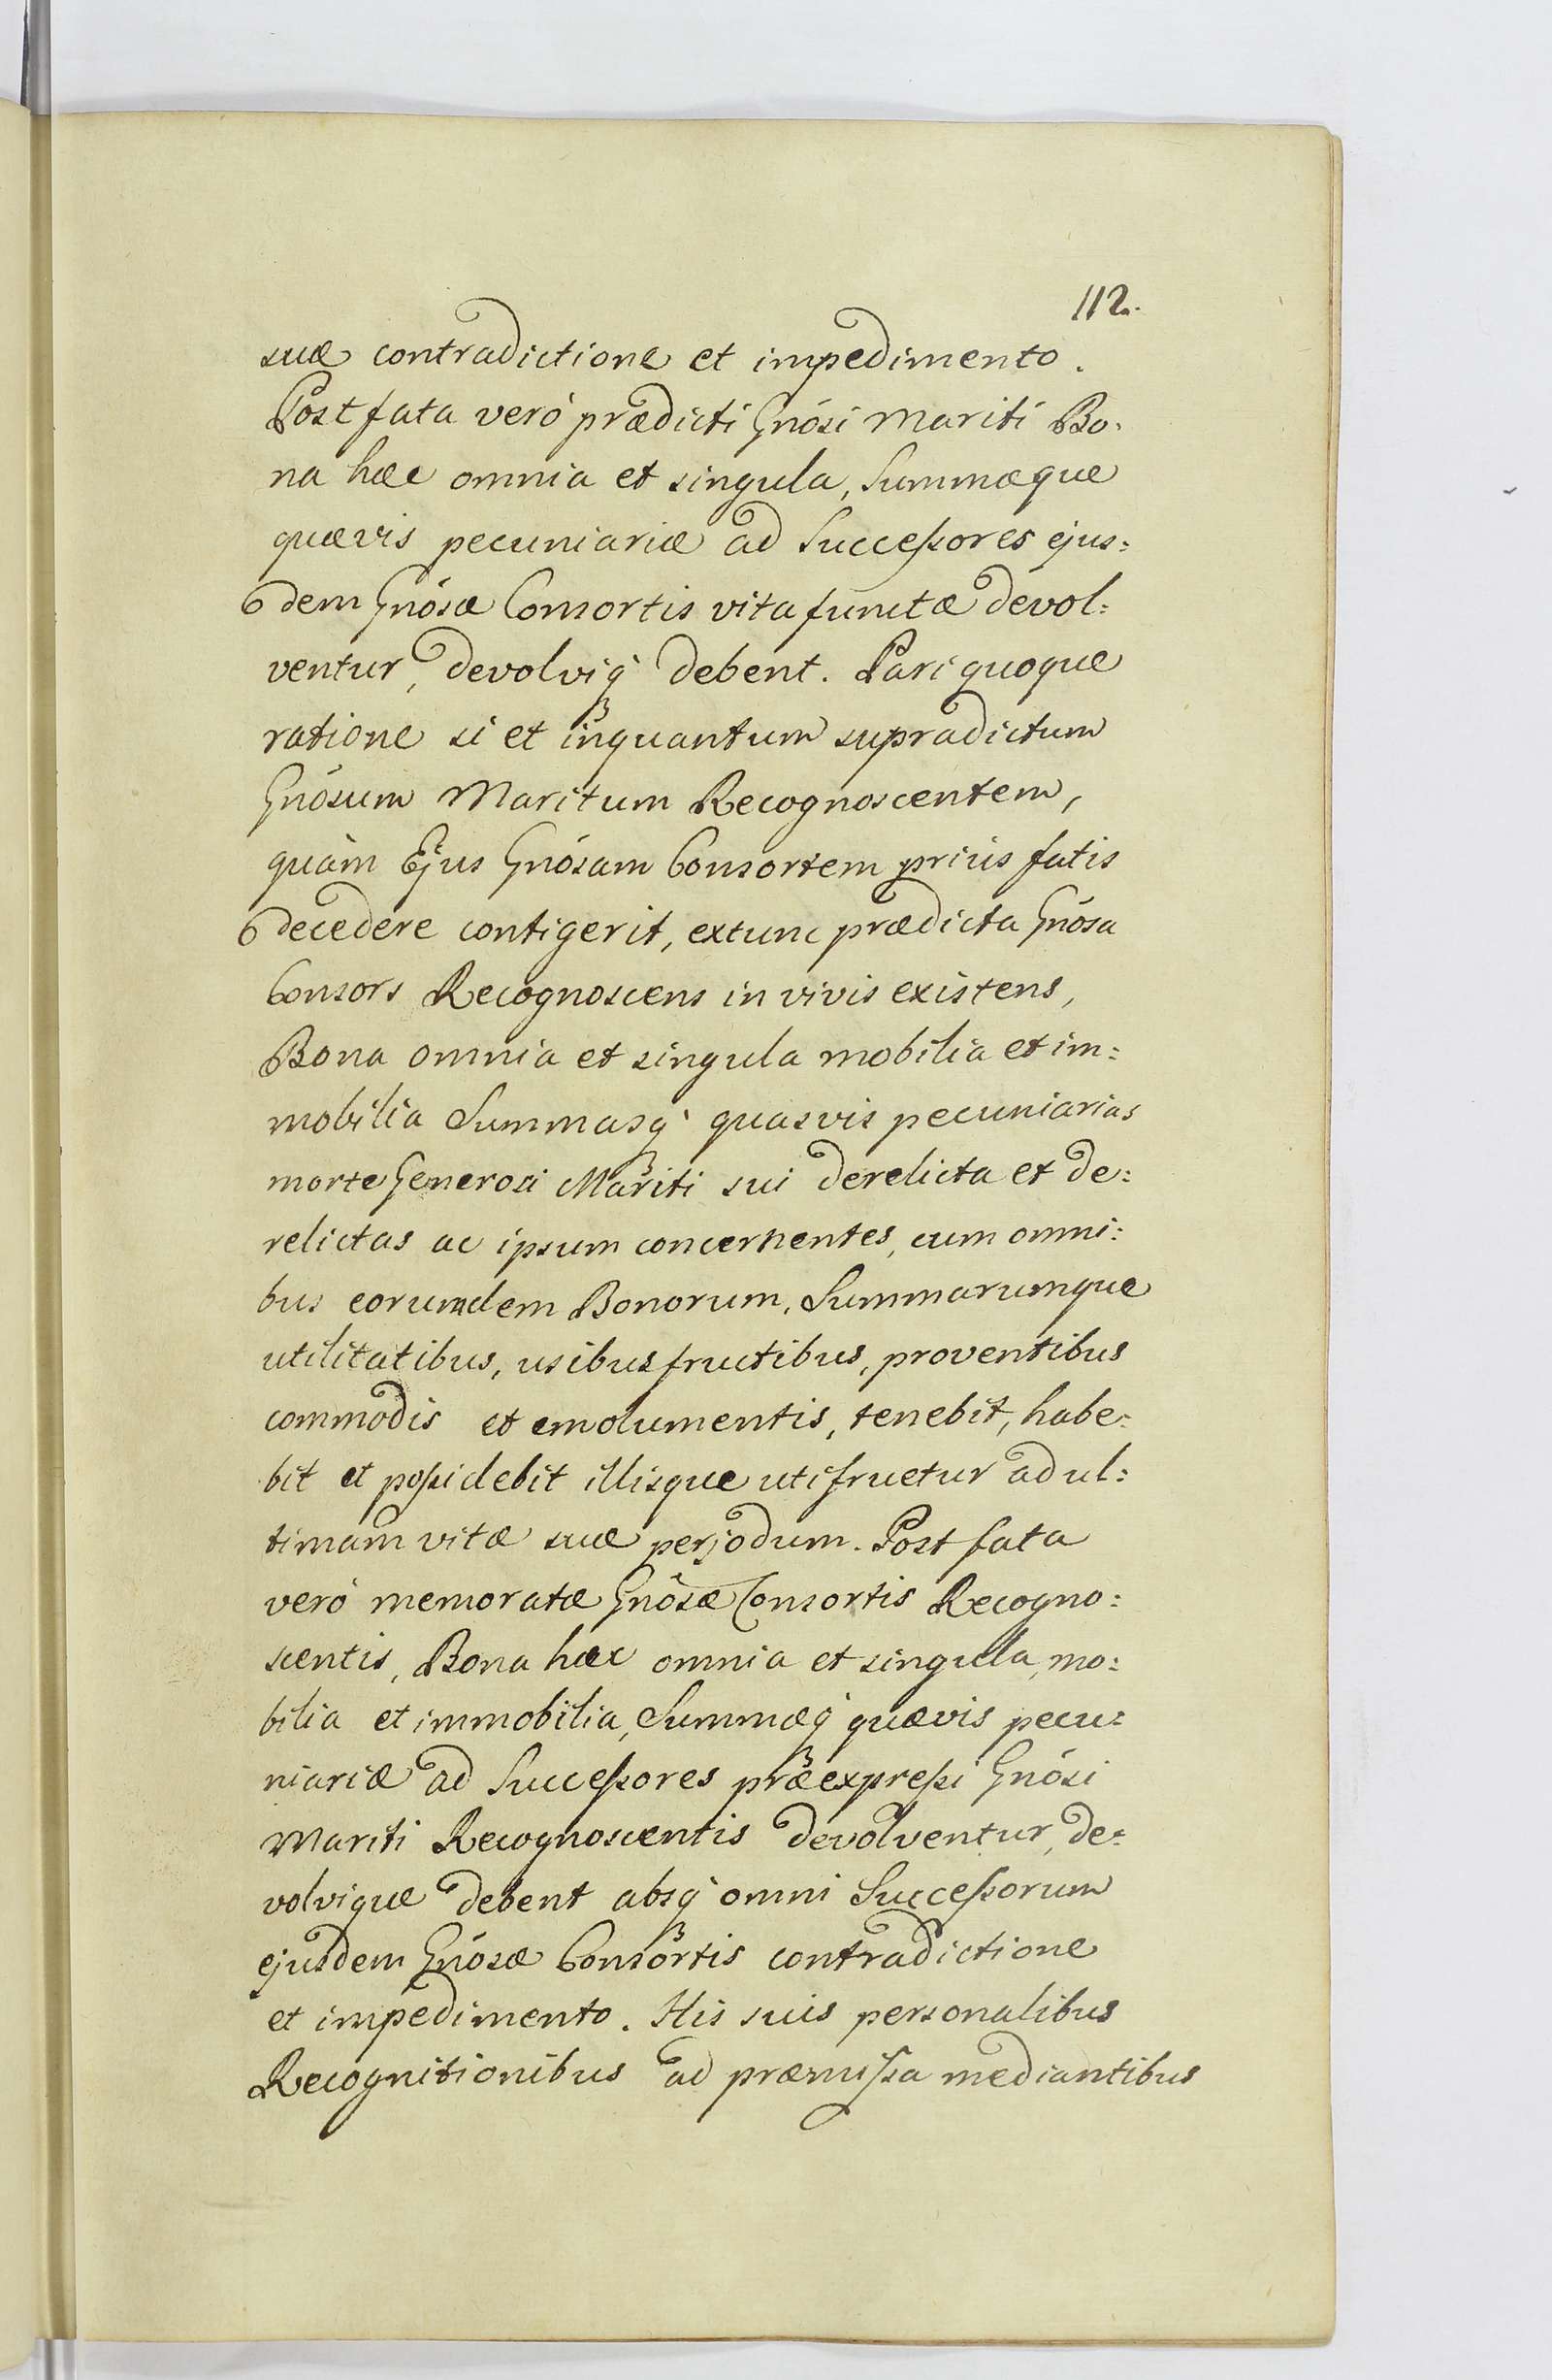 112.
suæ contradictione et impedimento.
Post fata veró prædicti Gnósi Mariti Bo:
na hæc omnia et singula, Summæque
quævis pecuniariæ ad Succeßores ejus:
dem Gnósæ Consortis vita functæ devol:
ventur, devolviq́ debent. Pari quoque
ratione si et inquantum supradictum
Gnósum Maritum Recognoscentem,
quàm Ejus Gnósam Consortem priús fatis
decedere contigerit, extunc prædicta Gnósa
Consors Recognoscens in vivis existens,
Bona omnia et singula mobilia et im:
mobilia Summasq́ quasvis pecuniarias
morte Generosi Mariti sui derelicta et de:
relictas ac ipsum concernentes, cum omni:
bus eorumdem Bonorum, Summarumque
utilitatibus, usibusfructibus, proventibus
commodis et emolumentis, tenebit, habe:
bit et poßidebit illisque utifruetur ad ul:
timam vitæ suæ perjodum. Post fata
veró memoratæ Gnósæ Consortis Recogno:
scentis, Bona hæc omnia et singula, mo:
bilia et immobilia, Summæq́ quævis pecu:
niariæ ad Succeßores præexpreßi Gnósi
Mariti Recognoscentis devolventur, de:
volvique debent absq́ omni Succeßorum
ejusdem Gnósæ Consortis contradictione
et impedimento. His suis personalibus
Recognitionibus ad præmißa mediantibus